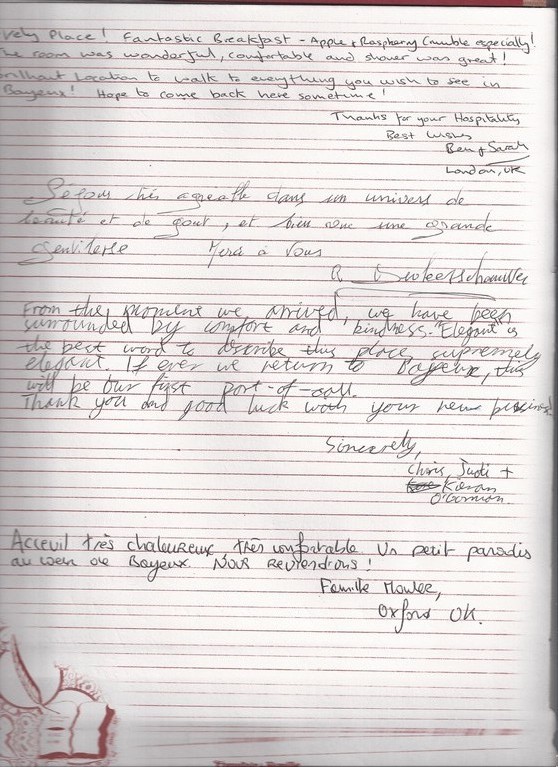 vely Place! Fantastic Breakfast - Apple & Raspberry Crumble especially!
he room was wonderful, comfortable and shower was great!
brilliant Location to walk to everything you wish to see in
Bayeux! Hope to come back here sometime!
Thanks for your Hospitality
Best wishes
Ben & Sarah
London, UK
Séjour très agréable dans un univers de
beauté et de goût, et bien une grande
gentillesse Merci à Vous
From the moment we arrived, we have been
surrounded by comfort and kindness. "Elegant" is
the best word to describe this place, supremely
elegant. If ever we return to Bayeux, this
will be our first port-of-call.
Thank you and good luck with your new business
Sincerely,
Chris, Judi +
Kieran
O'Gorman
Acceuil très chaleureux, très confortable. Un petit paradis
au coeur de Bayeux. Nous reviendrons!
Famille
Oxford UK.